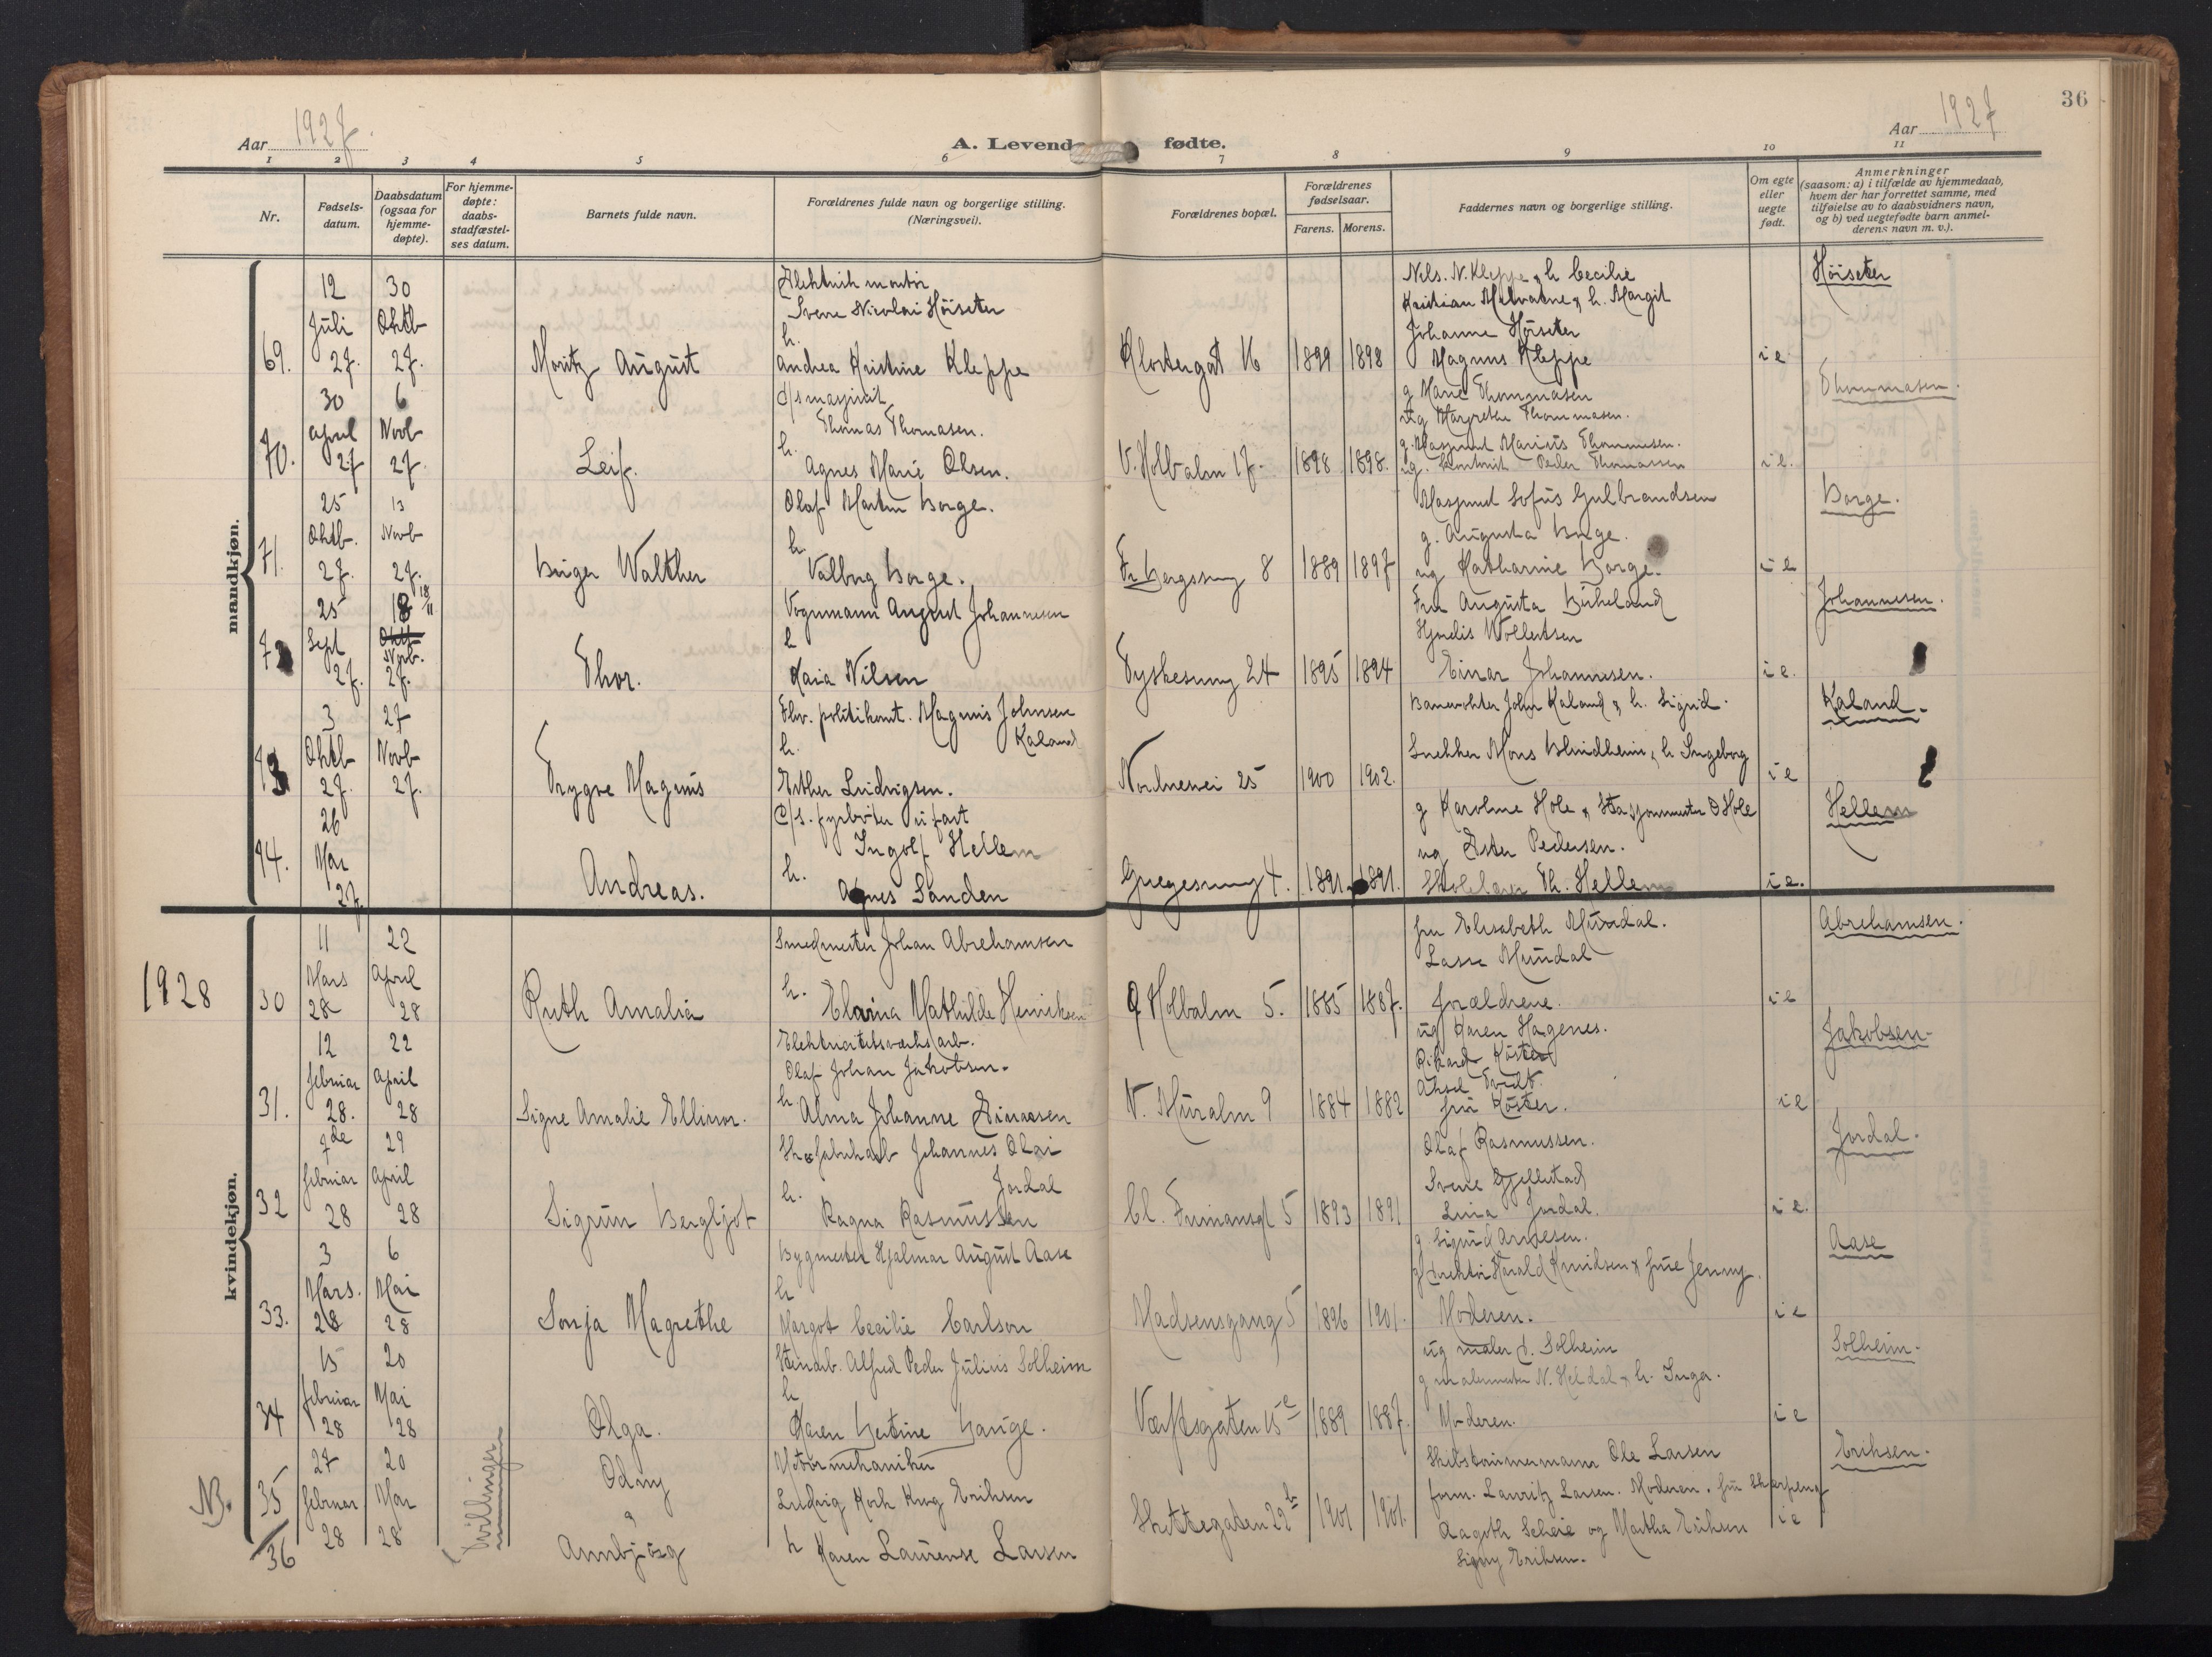 Aar 1927.
A. Levende fødte.
Aar 1927
36
1 2 3 4 5 6 7 8 9 10 11
Nr.
Fødsels-
datum.
Daabsdatum
(ogsaa for
hjemme-
døpte).
For hjemme-
døpte:
daabs-
stadfæstel-
ses datum.
Barnets fulde navn.
Forældrenes fulde navn og borgerlige stilling.
(Næringsvei).
Forældrenes bopæl.
Forældrenes
fødselsaar.
Farens. Morens.
Faddernes navn og borgerlige stilling.
Om egte
eller
uegte
født.
Anmerkninger
(saasom: a) i tilfælde av hjemmedaab,
hvem der har forrettet samme, med
tilføielse av to daabsvidners navn,
og b) ved uegtefødte barn anmel-
derens navn m. v.).
mandkjøn.
69.
12
Juli
27.
30
Oktb
27.
Moritz August
Elektrisk montør
Sverre Nicolai Höiseter
h.
Andrea Kristine Kleppe
Klostergat 16
1899 1898
Nils. N. Kleppe & h Cecilie
Kristian & h. Margit
Johanne Höiseter
Magnus Kleppe
i e
Höiseter
70.
30
april
27
6
Novb
27.
Leif.
d/s maskinist
Thomas Thomasen.
h.
Agnes Marie Olsen.
V. Holbalm 17.
1898 1898.
g Marie Thommasen
ug Margrethe Thommasen.
g. Marius Thommesen.
ug. Peder Thomassen
i e.
Thommasen.
71.
25
Oktb.
27.
13
Novb
27.
Birger Walther
Olaf Martin Borge.
h
Valborg Borge.
8
1889 1897
Sofus Gulbrandsen
g. Augusta Borge.
ug Katharine Borge.
i e
Borge.
72
25
Sept
27.
18 18/11
Oktb
Novb.
27.
Thor.
Vognmann August Johannesen
h
Kaia Nilsen
Tyskesmug 24
1895 1894
Fru Augusta Birkeland
Hjördis Wollertsen
Einar Johannesen.
i e.
Johannesen.
73
3
Oktb
27.
27
Novb
27.
Trygve Magnus
Fhv. politikonst. Magnus Johnsen
Kaland
h.
Esther Ludvigsen.
Nordnesvei 25
1900 1902.
Banevokter John Kaland & h. Sigrid.
Snekker Mons Blindheim & h Ingeborg
i e
Kaland.
74.
26
Mar
27.
Andreas.
d/s. fyrböter i fart
Ingolf Hellem
h.
Agnes Sanden
4.
1891. 1891.
g Karoline Hole & Hole
ug Ester Pedersen.
Th. Hellem
i e.
Hellem
kvindekjøn.
1928
30
11
Mars
28
22
April
28
Ruth Amalia
Smedmester Johan Abrehamsen
h.
Elvina Mathilde Henriksen
Holbalm 5.
1885 1887.
fru Elisabeth Mundal.
Lasse Mundal
forældrene.
i e
Abrehamsen.
31.
12
februar
28.
22
april
28
Signe Amalie Ellinor.
Elektricitetsverks arb.
Olaf Johan Jakobsen.
h
Alma Johanne Einarsen
V. Muralm 9
1884 1882
ug Karen Hagenes.
Rikard Köster
Aksel Tvedt.
fru Köster.
i e
Jakobsen.
32
7de
februar
28
29
April
28
Sigrun Bergljot
Johannes Olai
Jordal
h.
Ragna Rasmussen
Cl. Frimansgt 5
1893 1891
Olaf Rasmussen.
Sverre Gjellestad
Lina Jordal.
i e.
Jordal.
33.
3
Mars.
28
6
Mai
28
Sonja Magrethe
Bygmester Hjalmar August Aase
h
Margot Cecilie Carlson
Madsensgang 5
1896 1901.
g. Sigurd Arnesen.
Harald Knudsen & frue Jenny.
Moderen.
i e
Aase
34
15
februar
28
20
Mai
28
Olga.
Stenarb. Alfred Peder Julius Solheim
h
Karen Bertine Hauge.
Værftsgaten 15 e
1889 1887.
ug maler d. Solheim
g malermester N. Heldal & h. Inga.
Moderen.
i e
Solheim.
NB.
35
36
27
februar
28
20
Mai
28
Tvillinger
Odny
&
Annbjörg
Motormekaniker
Ludvig Koch Krog Eriksen
h
Karen Laurense Larsen
Skuttegaten 22 b
1901 1901.
Skibstömmermann Ole Larsen
form. Lauritz Larsen. Moderen. fru
Aagoth Scheie og Martha Eriksen
Signy Eriksen.
i e
Eriksen.